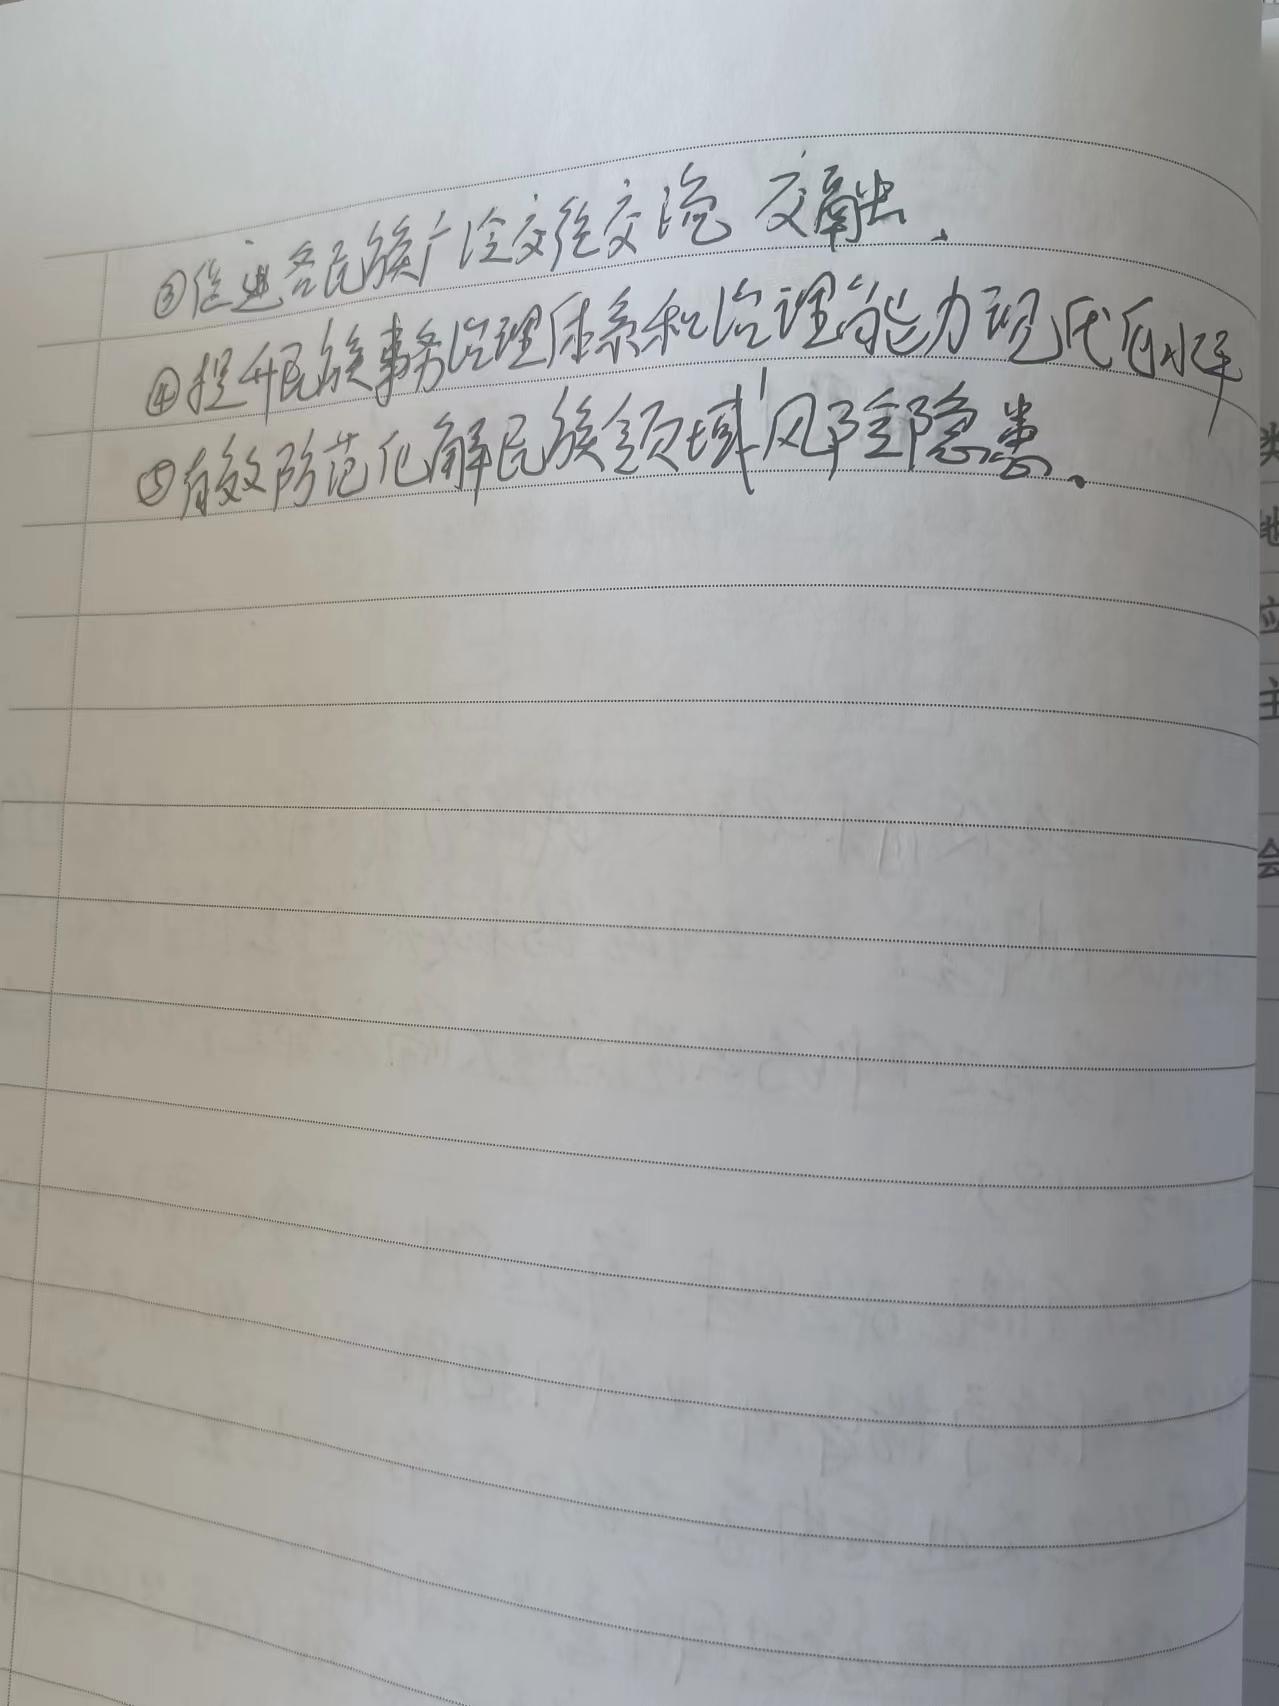 ③促进各民族广泛交往交流 交融.
④提升民族事务治理体系和治理能力现代化水平
⑤有效防范化解民族领域风险隐患.
类
地
立
主
会